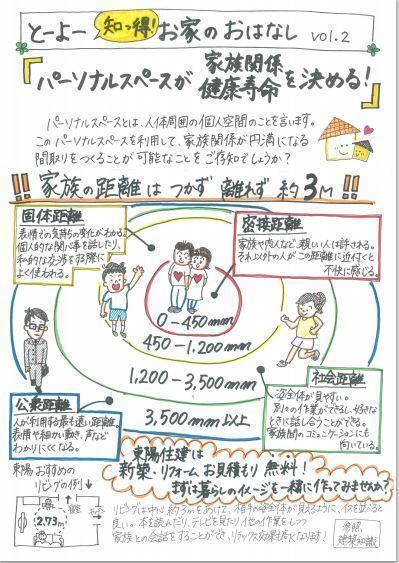 とーよー 知っ得! お家のおはなし vol.2
「パーソナルスペースが 家族関係 健康寿命 を決める!」
パーソナルスペースとは、人体周囲の個人空間のことを言います。
このパーソナルスペースを利用して、家族関係が円満になる
間取りをつくることが可能なことをご存知でしょうか?
!!家族の距離はつかず離れず約3M!!
固体距離
表情での気持ちの変化がわかる。
個人的な関心事を話したり、
私的な交渉をする際に
よく使われる。
密接距離
家族や恋人など、親しい人は許される。
それ以外の人がこの距離に近付くと
不快に感じる。
0-450mm
450-1,200mm
1,200-3,500mm
3,500mm以上
公衆距離
人が利用する最も遠い距離。
表情や細かい動き、声など
わかりにくくなる。
社会距離
姿全体が見やすい。
別々の作業ができるし、好きな
ときに話しかけることができる。
家族間のコミュニケーションにも
向いている。
東陽住建は
新築・リフォームお見積もり無料!
まずは暮らしのイメージを一緒に作ってみませんか?
東陽おすすめの
リビングの例↓
2.73m
リビングは中心約3mをあけて、相手の姿全体が見えるように、イスを並べると
良い。本を読んだり、テレビを見たり他の作業をしつつ
家族との会話をすることができ、リラックス効果も高くなります!
参照
建築知識